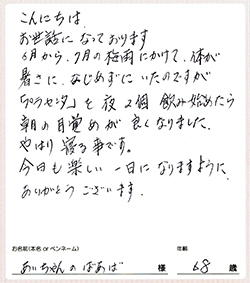 こんにちは
お世話になっております
6月から、7月の梅雨にかけて、体が
暑さに、なじめずにいたのですが
「プラセンタ」を夜2個 飲み始めたら
朝の目覚めが良くなりました。
やはり 寝る事です。
今日も楽しい一日になりますように
ありがとうございます.
お名前(本名 or ペンネーム) 年齢
あいちゃんのばあば 様 68 歳